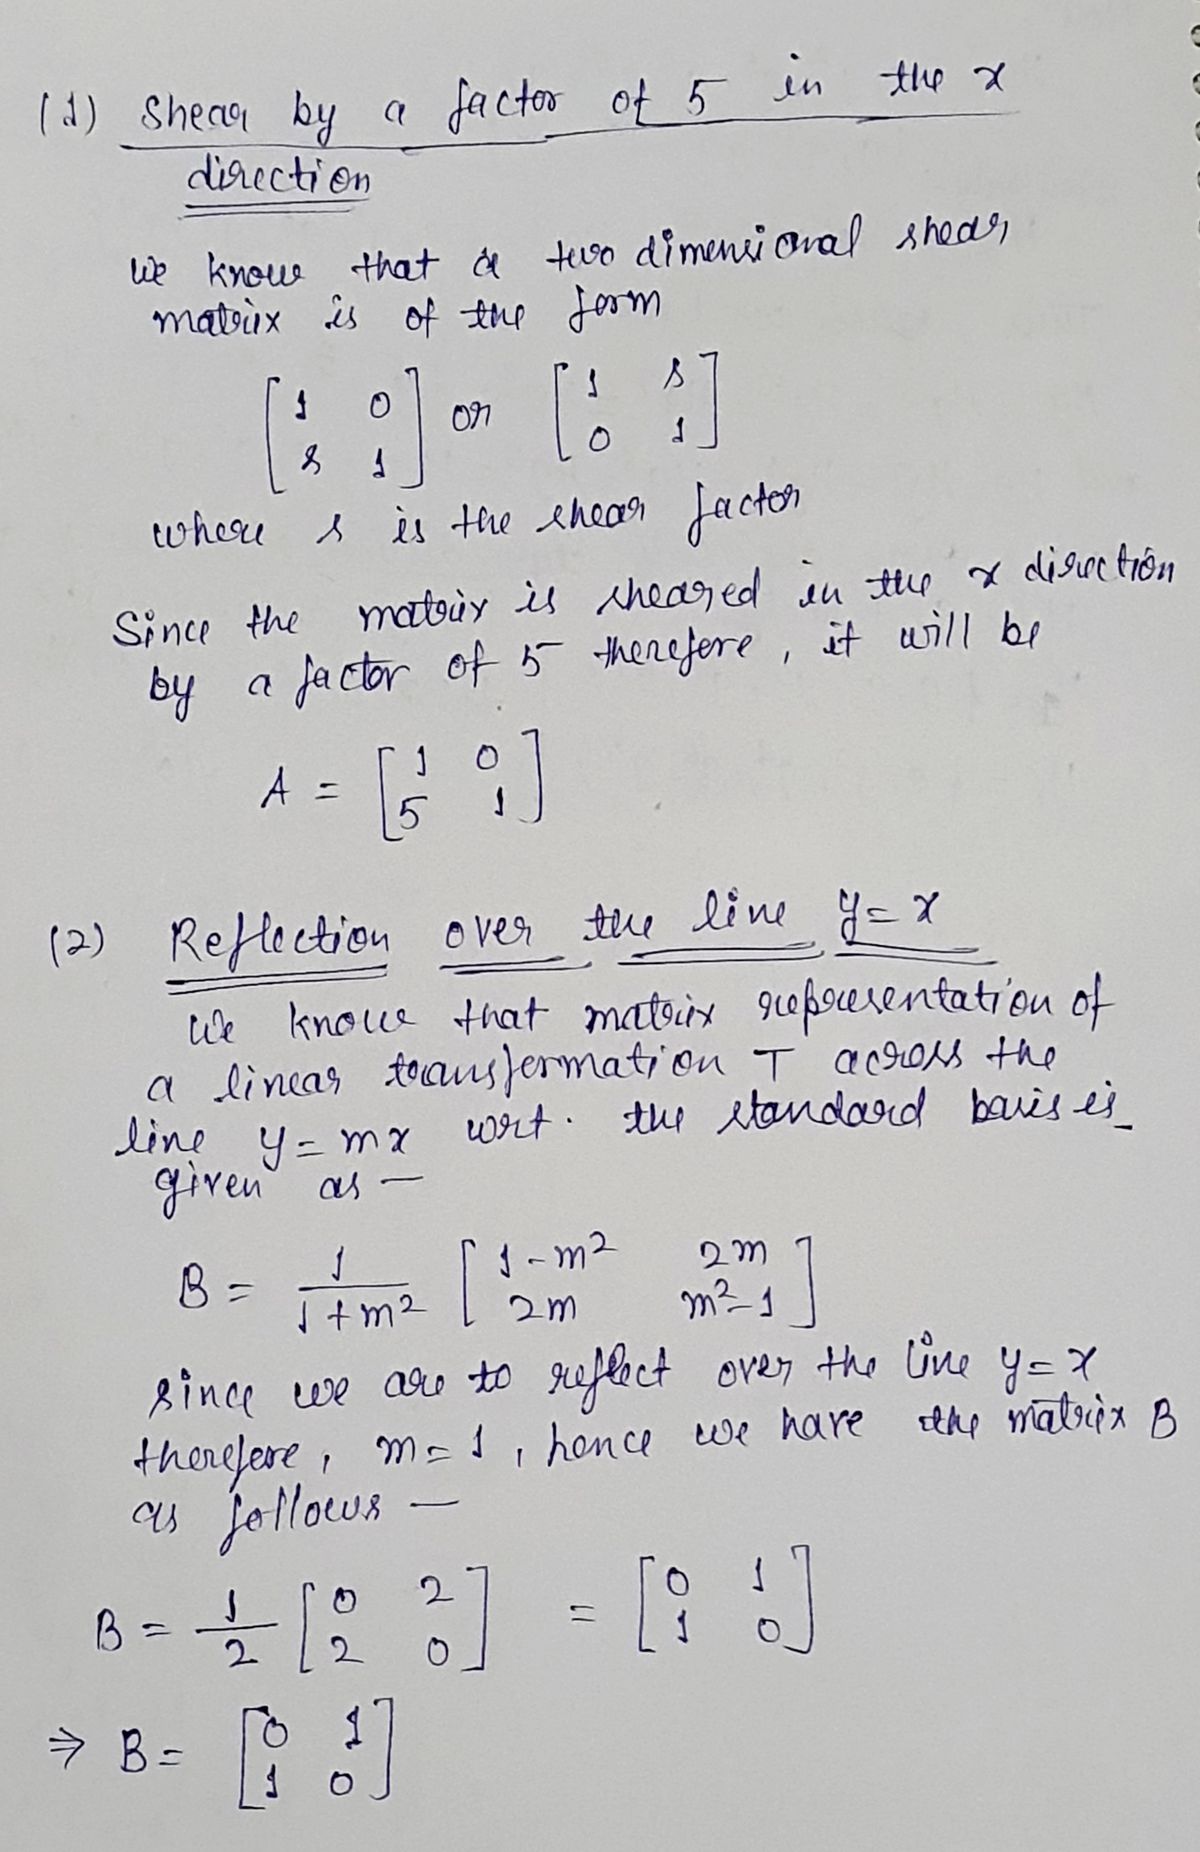 (1) Shear by a factor of 5 in the x
direction
We know that a two dimensional shear
matrix is of the form
[1 0; s 1] or [1 s; 0 1]
where s is the shear factor
Since the matrix is sheared in the x direction
by a factor of 5 therefore, it will be
A = [1 0; 5 1]
(2) Reflection over the line y = x
We know that matrix representation of
a linear transformation T across the
line y = mx wrt. the standard basis is
given as —
B = 1/(1+m²) [1-m² 2m; 2m m²-1]
since we are to reflect over the line y = x
therefore, m = 1, hence we have the matrix B
as follows —
B = 1/2 [0 2; 2 0] = [0 1; 1 0]
⇒ B = [0 1; 1 0]